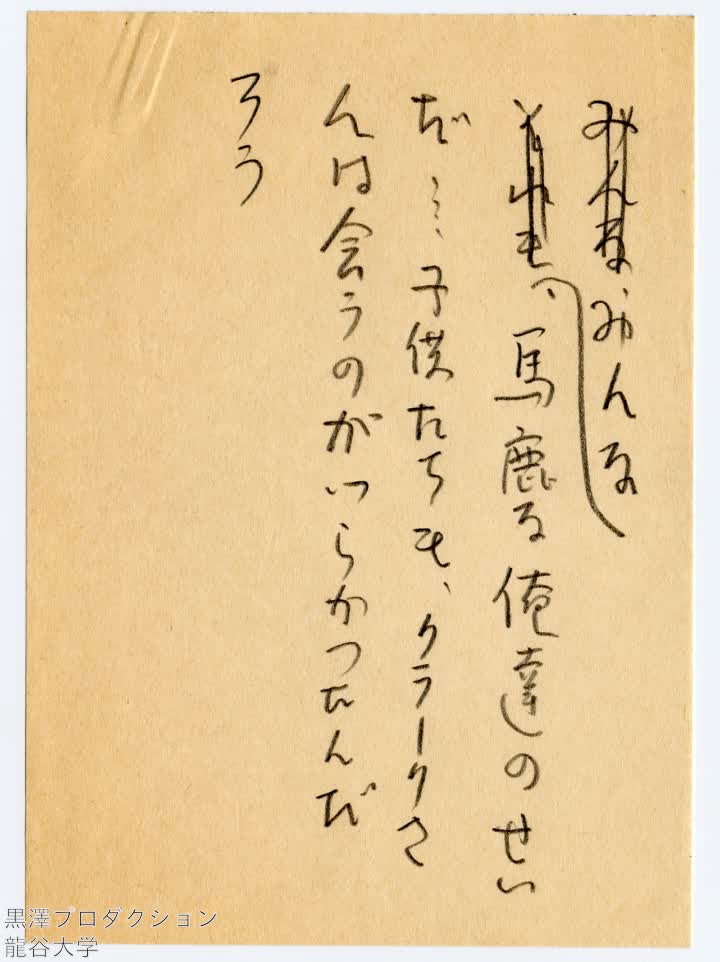 みんな、みんな
それも、馬鹿な俺達のせい
だ…、子供たちも、クラークさ
んは会うのがつらかつたんだ
ろう
黒澤プロダクション
龍谷大学